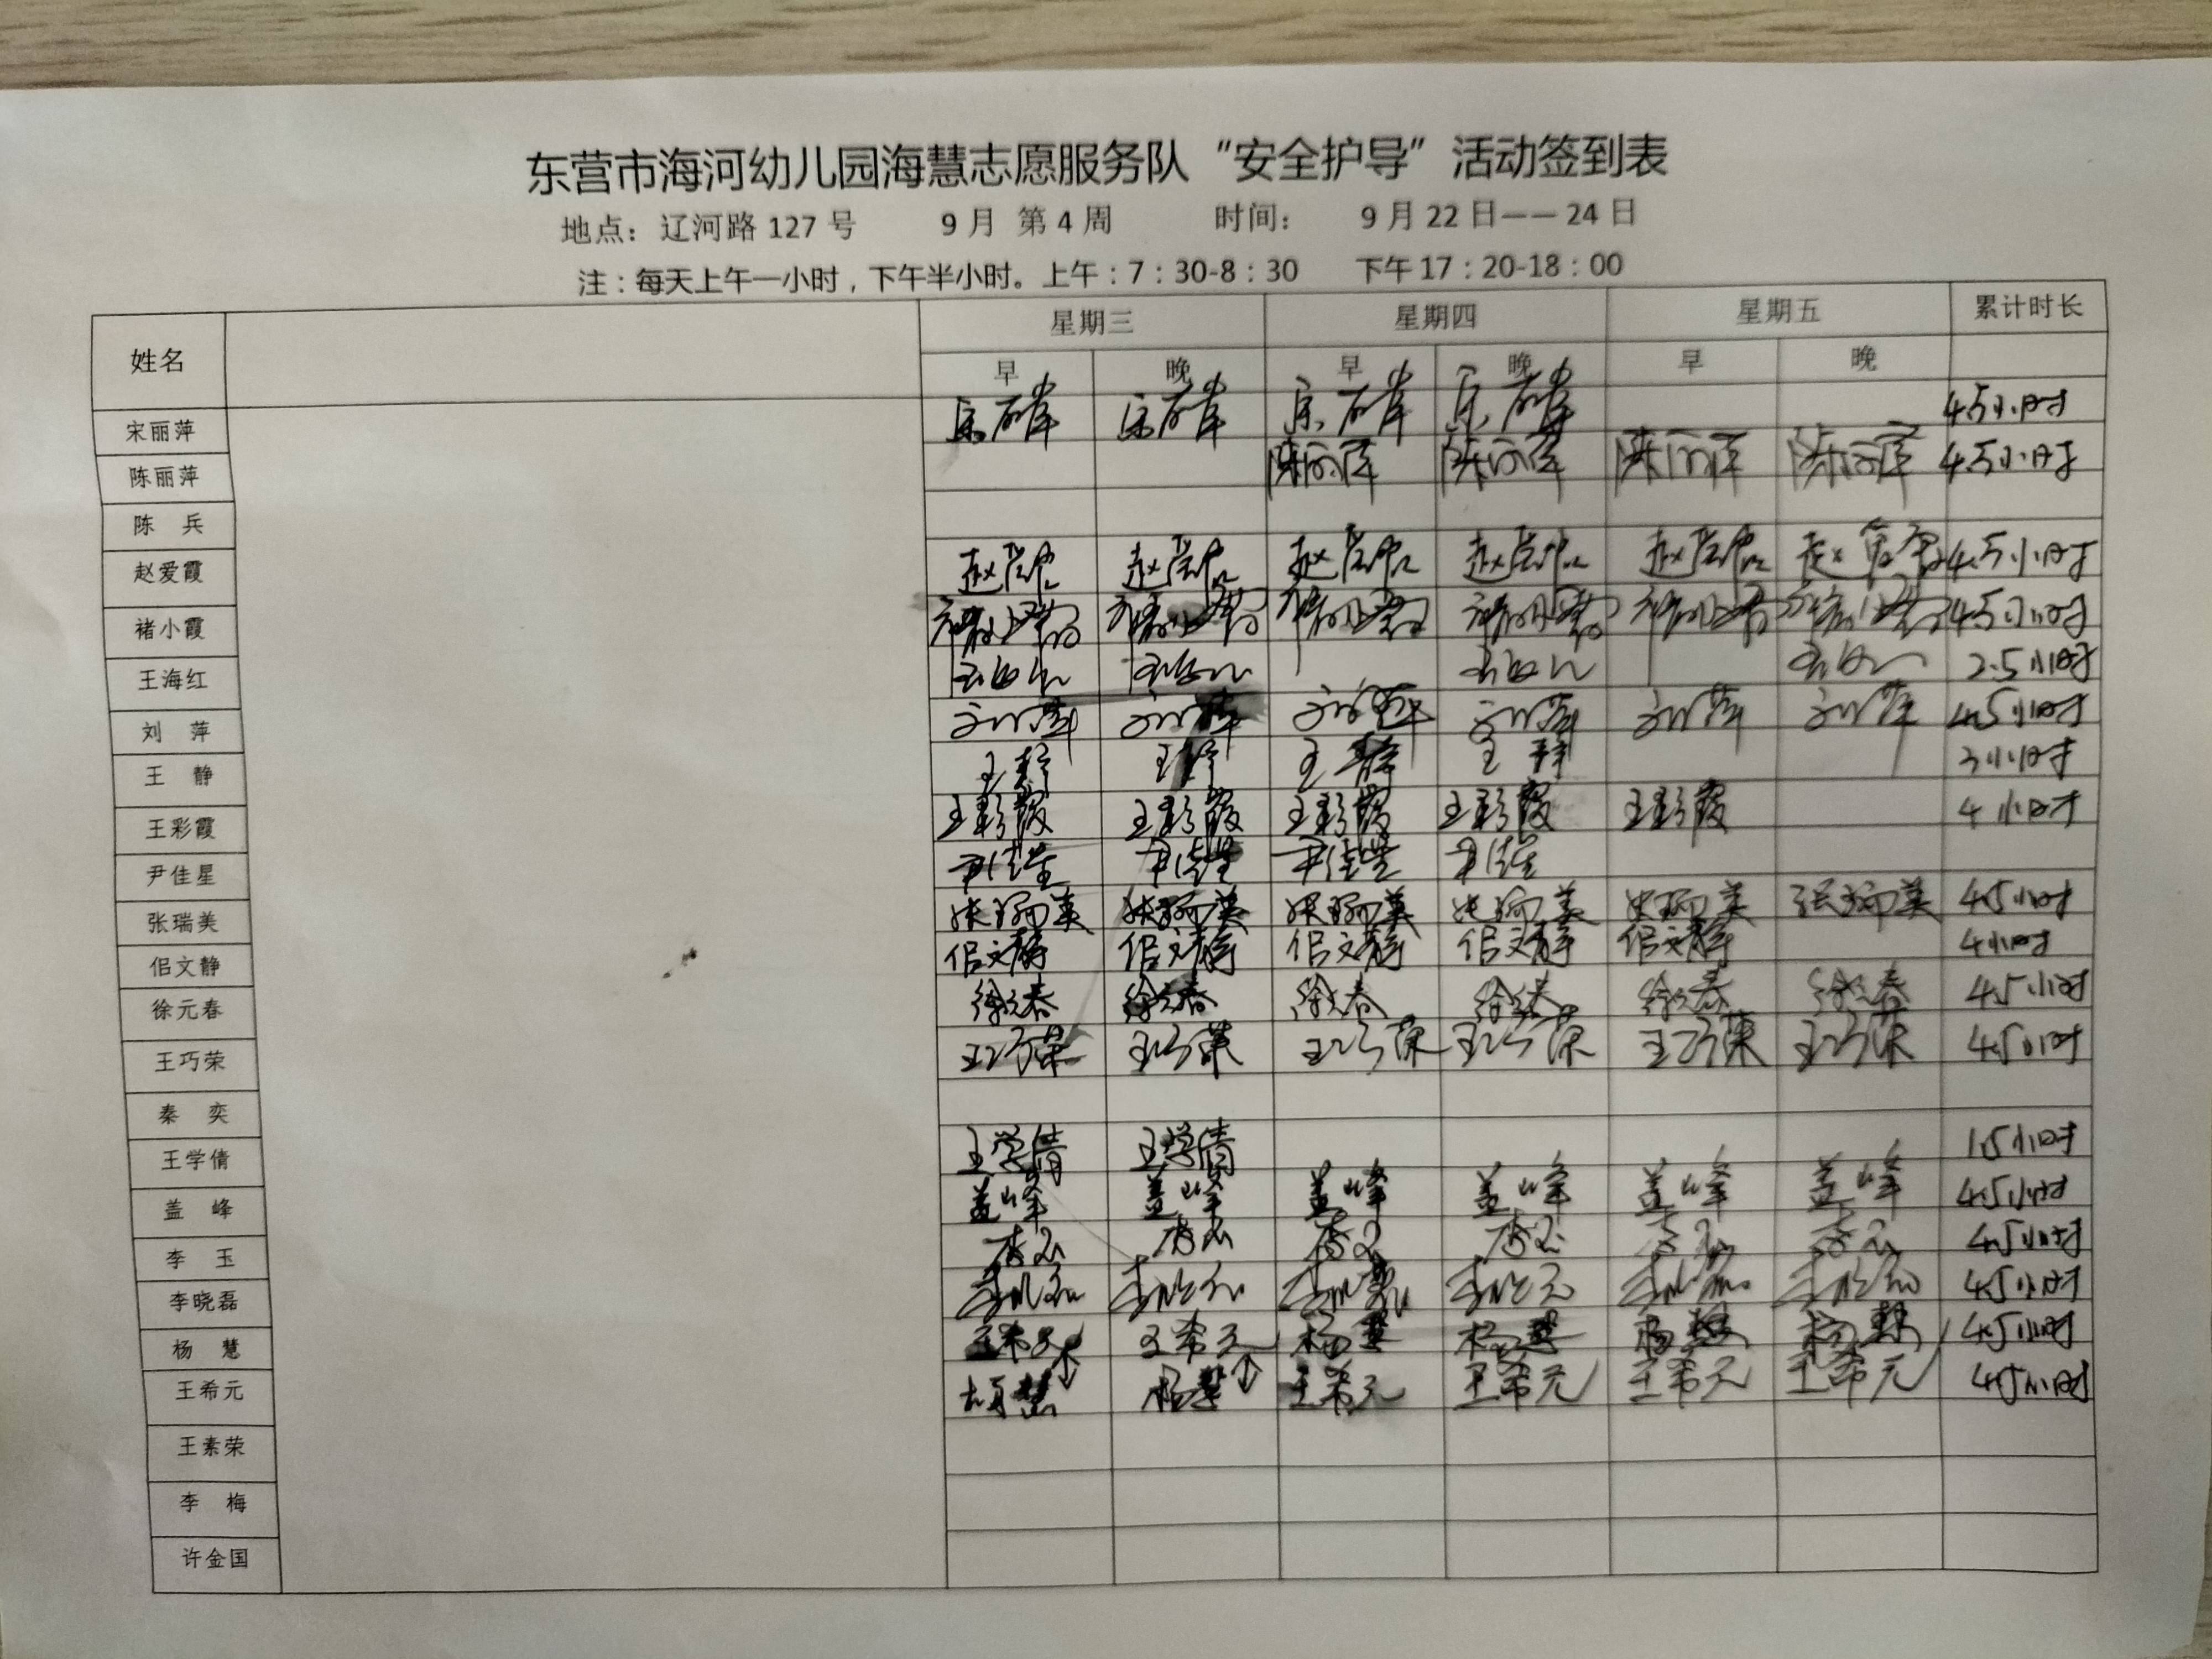 东营市海河幼儿园海慧志愿服务队“安全护导”活动签到表
地点：辽河路 127 号 9 月 第 4 周 时间： 9 月 22 日—— 24 日
注：每天上午一小时，下午半小时。上午：7：30-8：30 下午 17：20-18：00
姓名 星期三 星期四 星期五 累计时长
早 晚 早 晚 早 晚
宋丽萍 4.5小时
陈丽萍 陈丽萍 陈丽萍 陈丽萍 陈丽萍 4.5小时
陈 兵
赵爱霞 4.5小时
褚小霞 4.5小时
王海红 2.5小时
刘 萍 刘萍 刘萍 刘萍 刘萍 刘萍 刘萍 4.5小时
王 静 王静 王静 王静 王静 3小时
王彩霞 王彩霞 王彩霞 王彩霞 王彩霞 王彩霞 4小时
尹佳星 尹佳星 尹佳星 尹佳星 尹佳星
张瑞美 张瑞美 张瑞美 张瑞美 张瑞美 张瑞美 张瑞美 4.5小时
佀文静 佀文静 佀文静 佀文静 佀文静 佀文静 4小时
徐元春 徐元春 徐元春 徐元春 徐元春 徐元春 徐元春 4.5小时
王巧荣 王巧荣 王巧荣 王巧荣 王巧荣 王巧荣 王巧荣 4.5小时
秦 奕
王学倩 王学倩 王学倩 1.5小时
盖 峰 盖峰 盖峰 盖峰 盖峰 盖峰 盖峰 4.5小时
李 玉 李玉 李玉 李玉 李玉 李玉 李玉 4.5小时
李晓磊 4.5小时
杨 慧 王希元 王希元 杨慧 杨慧 杨慧 杨慧 4.5小时
王希元 杨慧 杨慧 王希元 王希元 王希元 王希元 4.5小时
王素荣
李 梅
许金国